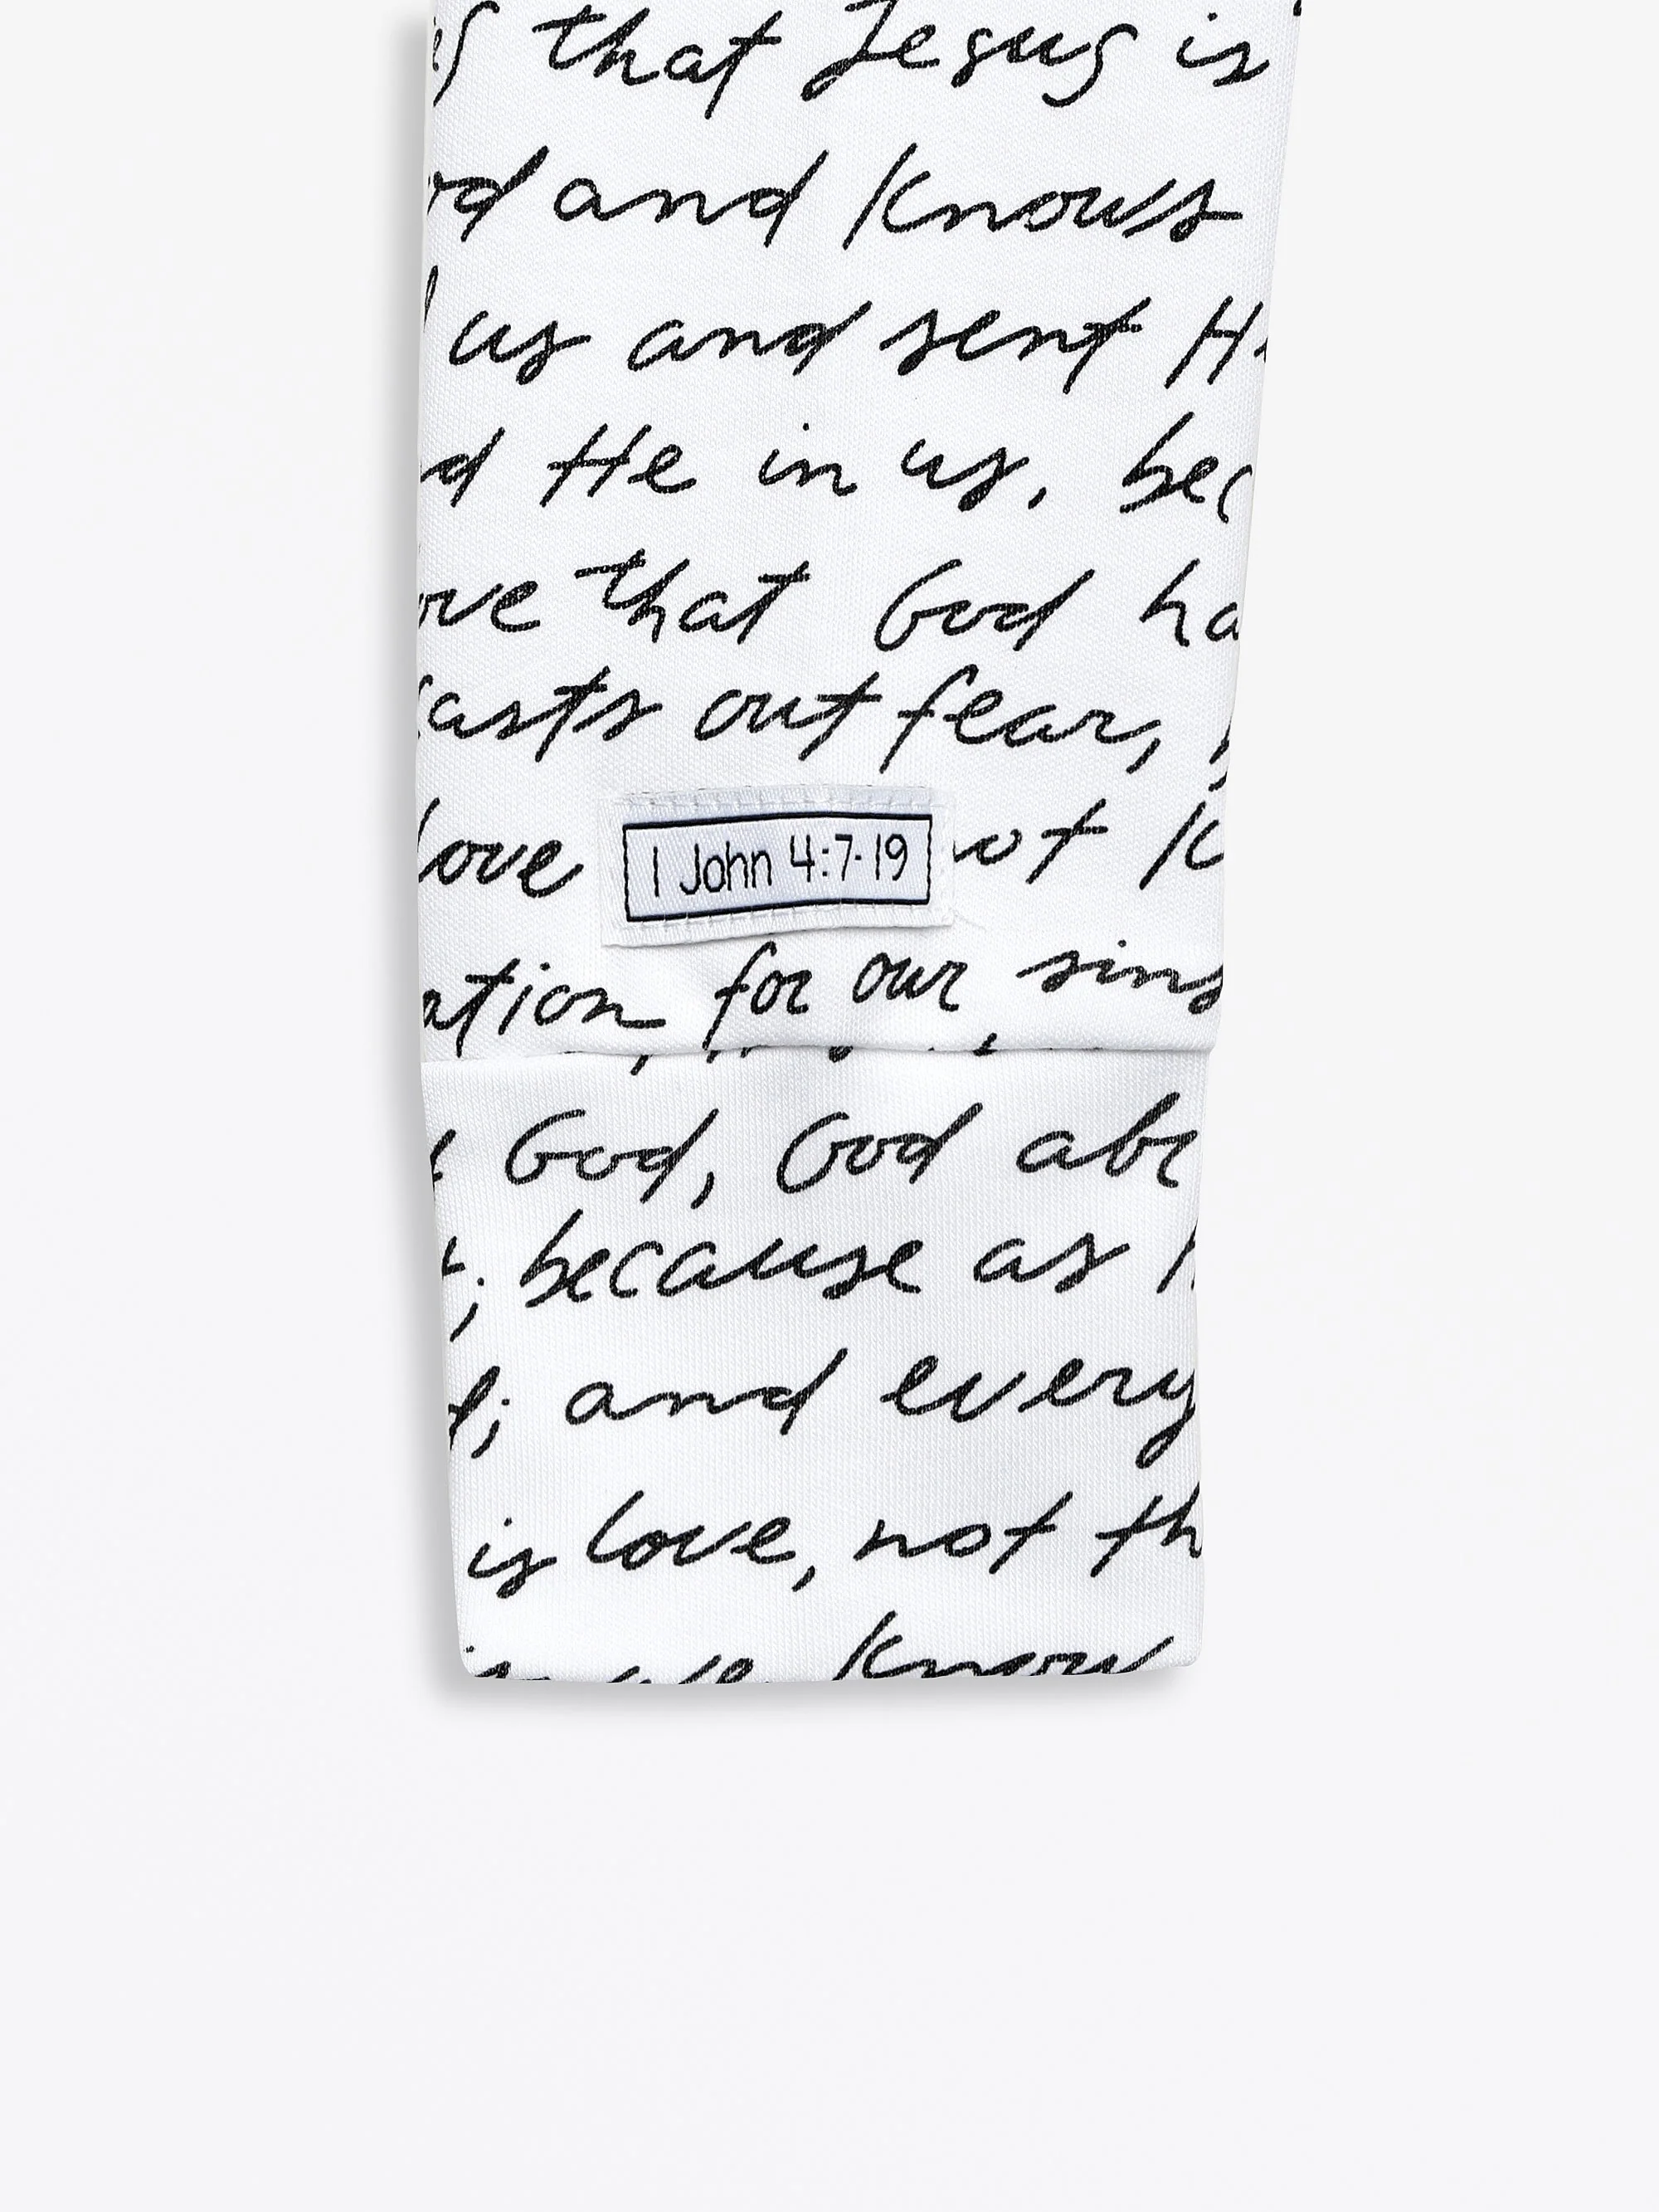 that Jesus is
and knows
us and sent
He in us, bec
that God ha
asts out fear,
love
1 John 4:7-19
ation for our sins
God, God
; because as
; and every
is love, not th
know